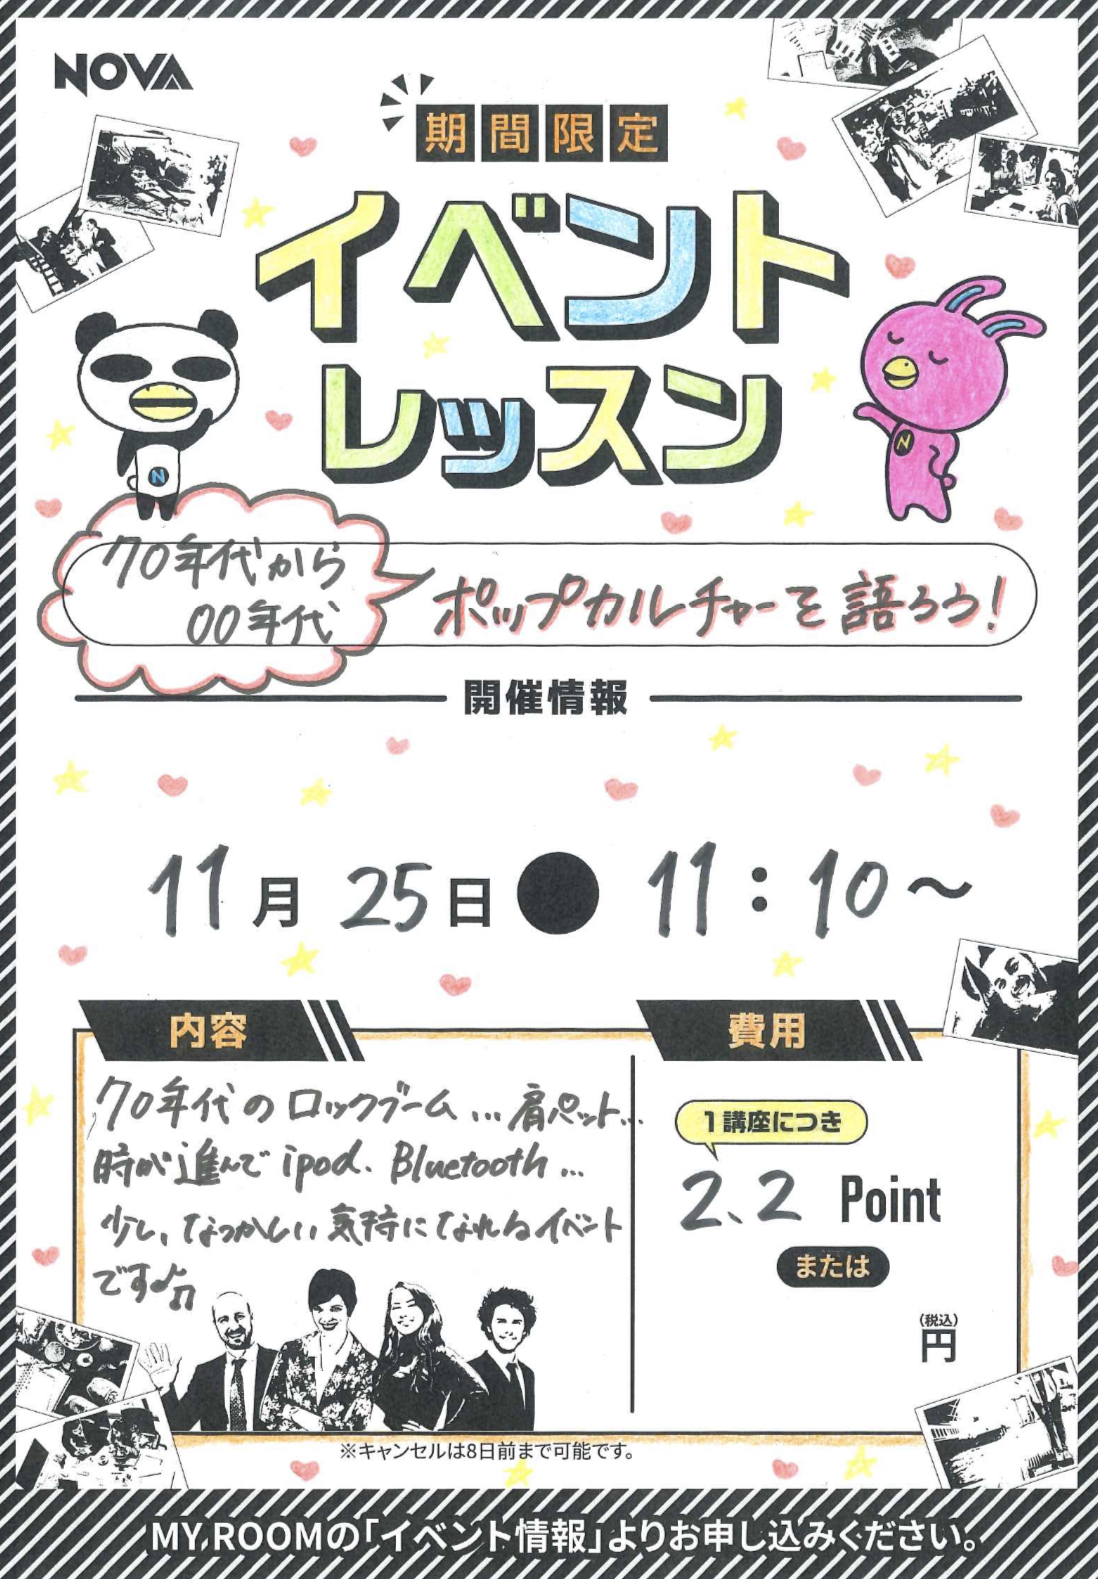 NOVA
期間限定
イベント
レッスン
70年代から
00年代
ポップカルチャーを語ろう!
開催情報
11月25日●11:10~
内容
70年代のロックブーム…肩パット…
時が進んでipod、Bluetooth…
少し、なつかしい気持になれるイベント
です♪♫
費用
1講座につき
2.2 Point
または
(税込)
円
※キャンセルは8日前まで可能です。
MY ROOMの「イベント情報」よりお申し込みください。
N
N